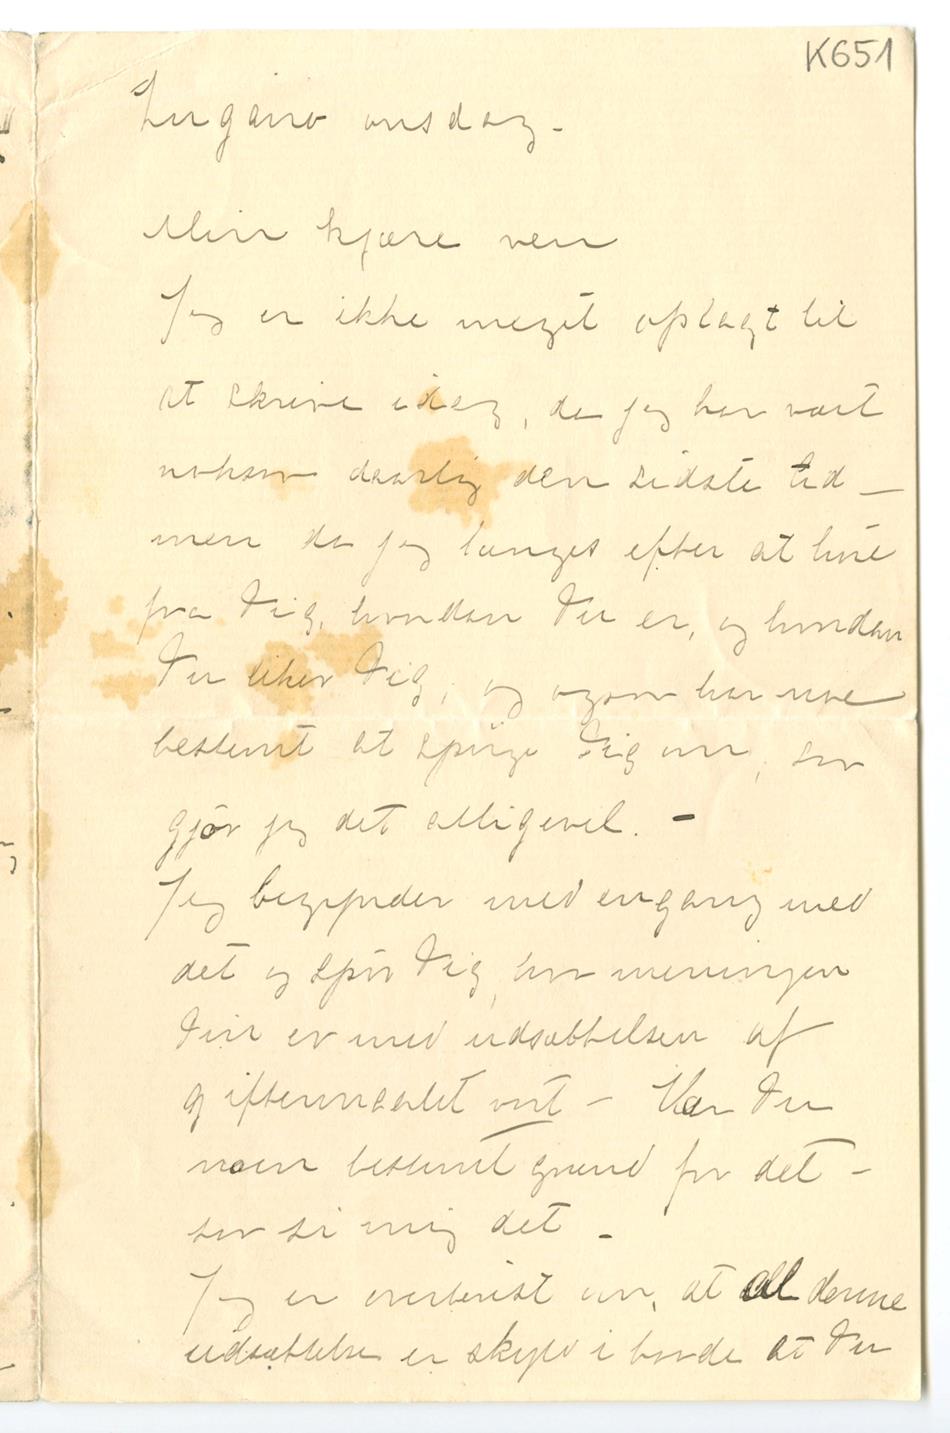 K651
Lugano onsdag –
Min kjære ven
Jeg er ikke meget oplagt til
at skrive idag, da jeg har vært
noksaa daarlig den sidste tid –
men da jeg længes efter at høre
fra Dig, hvordan Du er, og hvordan
Du liker Dig, og ogsaa har noe
bestemt at spørge Dig om, saa
gjør jeg det alligevel. –
Jeg begynder med engang med
det og spør Dig, hva meningen
Din er med udsættelsen af
giftermaalet vort – Har Du
noen bestemt grund for det –
saa si mig det –
Jeg er overbevist om, at all denne
udsættelse er skyld i baade at Du